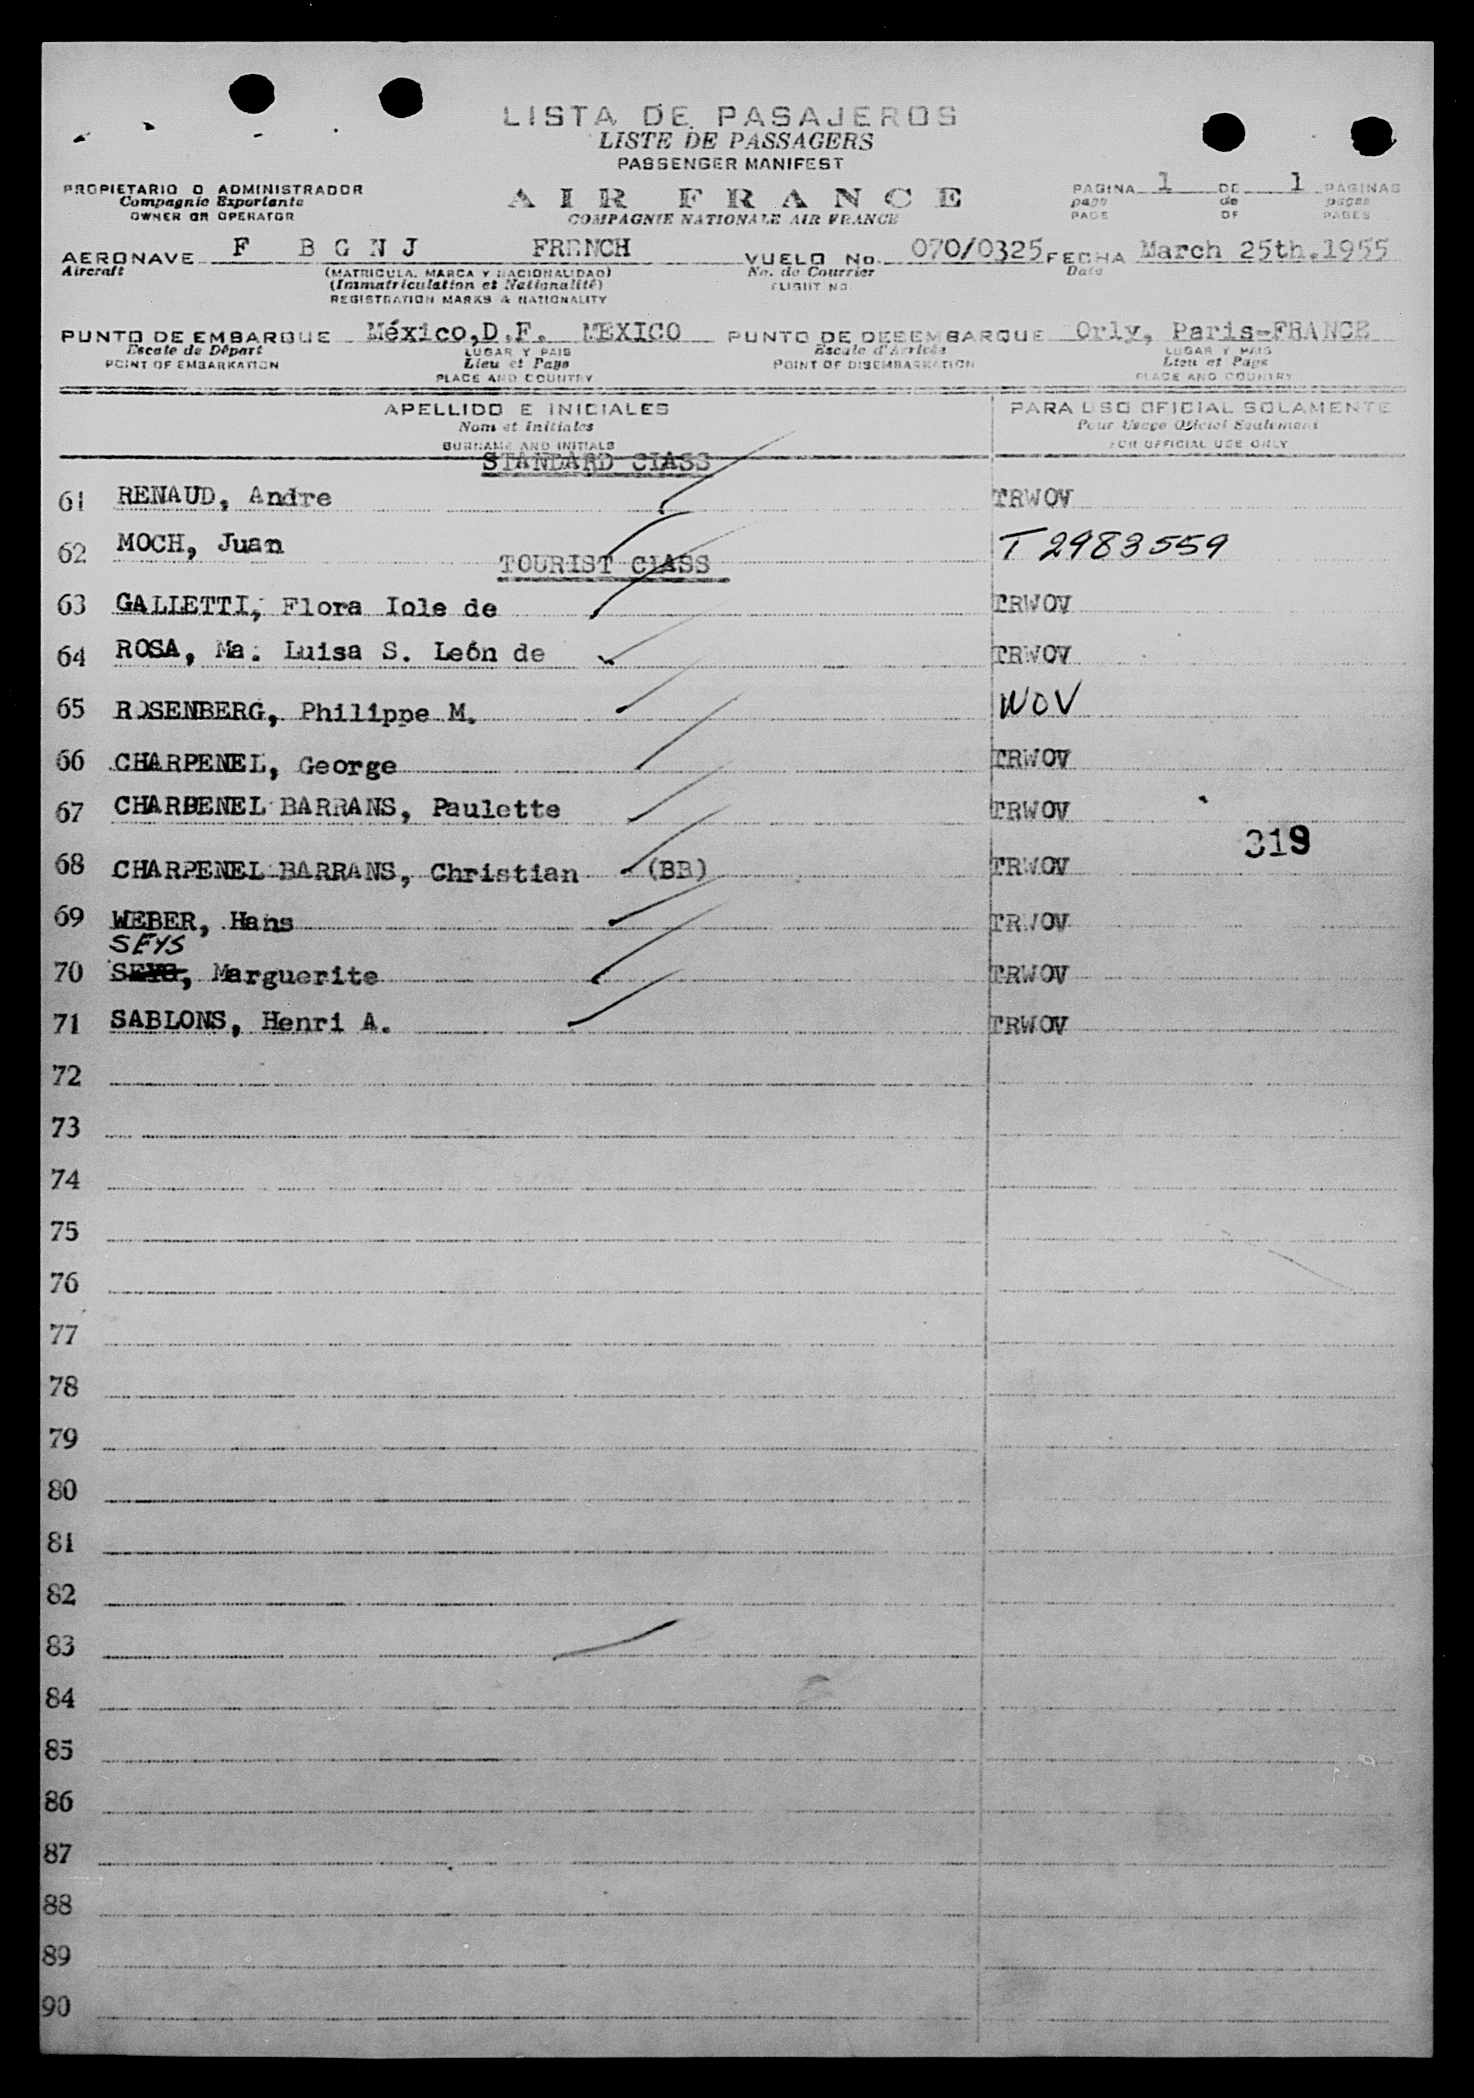 LISTA DE PASAJEROS
LISTE DE PASSAGERS
PASSENGER MANIFEST
PROPIETARIO O ADMINISTRADOR
Compagnie Exportante
OWNER OR OPERATOR
AIR FRANCE
COMPAGNIE NATIONALE AIR FRANCE
PAGINA 1 DE 1 PAGINAS
page de pages
PAGE OF PAGES
AERONAVE F B G N J FRENCH VUELO No. 070/0325 FECHA March 25th.1955
Aircraft (MATRICULA, MARCA Y NACIONALIDAD) No. de Courrier Date
(Immatriculation et Nationalité) FLIGHT NO.
REGISTRATION MARKS & NATIONALITY
PUNTO DE EMBARQUE México,D.F. MEXICO PUNTO DE DESEMBARQUE Orly, Paris-FRANCE
Escale de Départ LUGAR Y PAIS Escale d'Arrivée LUGAR Y PAIS
POINT OF EMBARKATION Lieu et Pays POINT OF DISEMBARKATION Lieu et Pays
PLACE AND COUNTRY PLACE AND COUNTRY
APELLIDO E INICIALES PARA USO OFICIAL SOLAMENTE
Nom et Initiales Pour Usage Officiel Seulement
SURNAME AND INITIALS FOR OFFICIAL USE ONLY
STANDARD CLASS
61 RENAUD, Andre TRWOV
62 MOCH, Juan T 2983559
TOURIST CLASS
63 GALLETTI, Flora Iole de TRWOV
64 ROSA, Ma. Luisa S. León de TRWOV
65 ROSENBERG, Philippe M. WOV
66 CHARPENEL, George TRWOV
67 CHARPENEL BARRANS, Paulette TRWOV
319
68 CHARPENEL BARRANS, Christian (BB) TRWOV
69 WEBER, Hans TRWOV
SEYS
70 SEYS, Marguerite TRWOV
71 SABLONS, Henri A. TRWOV
72
73
74
75
76
77
78
79
80
81
82
83
84
85
86
87
88
89
90